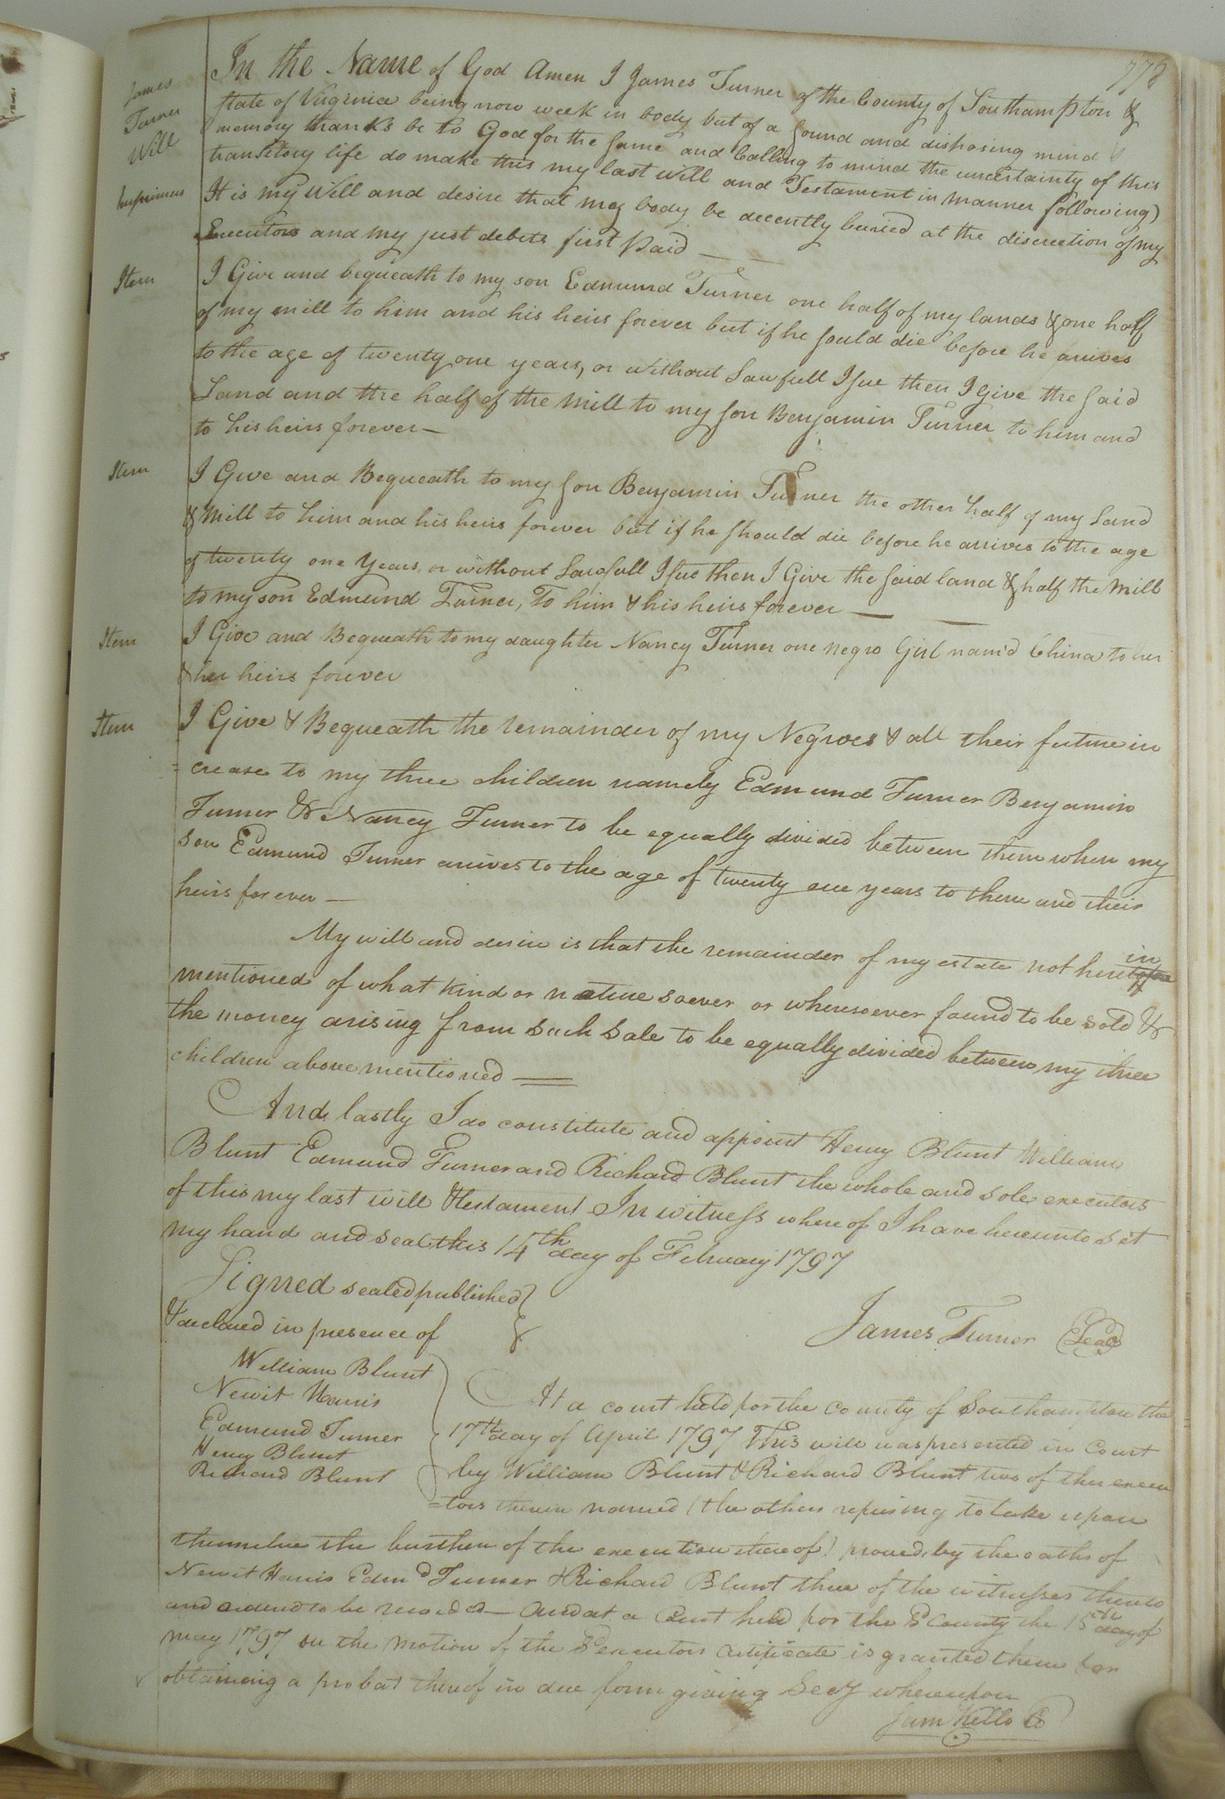 778
James
Turner
Will
In the Name of God Amen I James Turner of the County of Southampton &
State of Virginia being now week in body but of a sound and disposing mind &
memory thanks be to God for the same and Calling to mind the uncertainty of this
transitory life do make this my last will and Testament in manner following)
Imprimus It is my Will and desire that my body be decently buried at the discretion of my
Executors and my just debts first paid —
Item I Give and bequeath to my son Edmund Turner one half of my lands & one half
of my mill to him and his heirs forever but if he sould die before he arives
to the age of twenty one years, or without Lawfull Issue then I Give the said
Land and the half of the Mill to my son Benjamin Turner to him and
to his heirs forever —
Item I Give and Bequeath to my son Benjamin Turner the other half of my Land
& Mill to him and his heirs forever but if he should die before he arrives to the age
of twenty one Years, or without Lawfull Issue then I Give the said land & half the Mill
to my son Edmund Turner, To him & his heirs forever —
Item I Give and Bequeath to my daughter Nancy Turner one negro Girl nam'd China to her
& her heirs forever
Item I Give & Bequeath the remainder of my Negroes & all their future in
=crease to my three children namely Edmund Turner Benjamin
Turner & Nancy Turner to be equally divided between them when my
son Edmund Turner arives to the age of twenty one years to them and their
heirs for ever —
My will and desire is that the remainder of my estate not herein
mentioned of what kind or nature soever or wheresoever found to be sold &
the money arising from such sale to be equally divided between my three
children above mentioned —
And lastly I do constitute and appoint Henry Blunt William
Blunt Edmund Turner and Richard Blunt the whole and sole executors
of this my last will & testament In witness whereof I have hereunto set
my hand and seal this 14th day of February 1797
Signed sealed published
& declared in presence of
James Turner (Seal)
William Blunt
Newit Harris
Edmund Turner
Henry Blunt
Richard Blunt
At a court held for the County of Southampton the
17th day of April 1797 This will was presented in Court
by William Blunt & Richard Blunt two of the execu
=tors therein named (the others refusing to take upon
themselves the burthen of the execution thereof) proved by the oaths of
Newit Harris Edmd Turner & Richard Blunt three of the witnesses thereto
and ordered to be recorded — And at a Court held for the sd County the 15th day of
may 1797 on the motion of the sd executors Certificate is granted them for
obtaining a probat thereof in due form giving Secy whereupon
Sam Kello CC